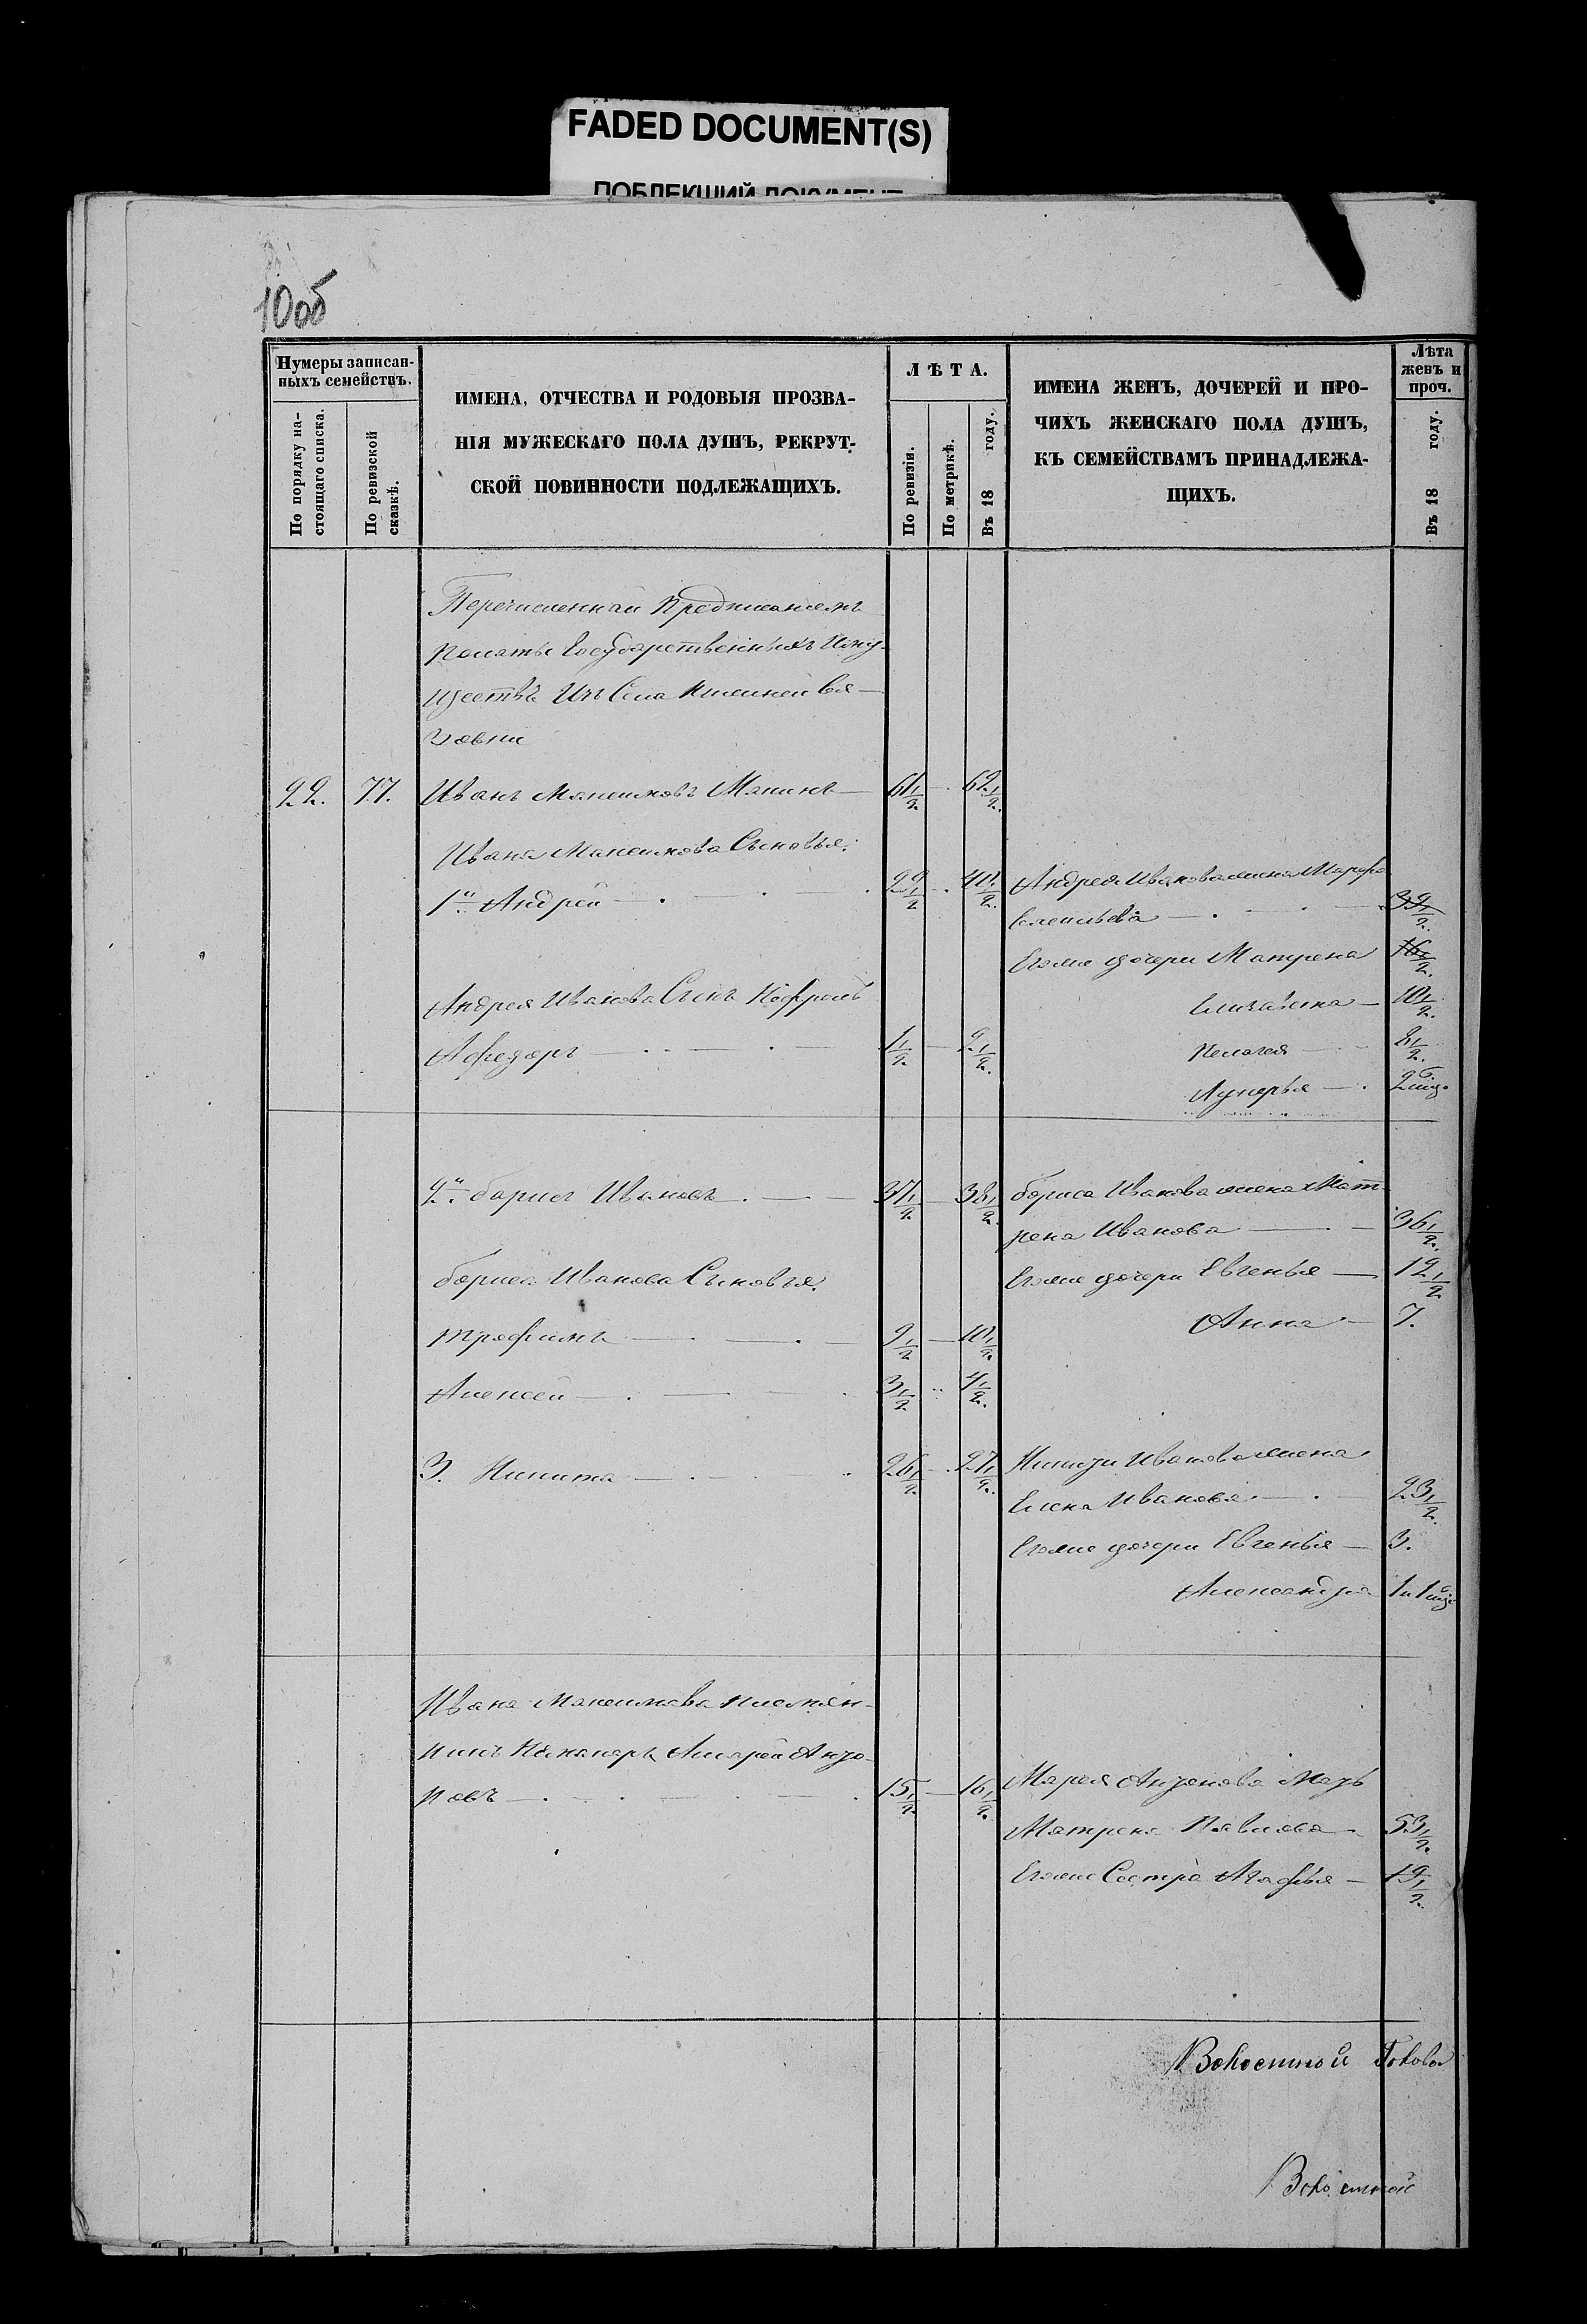 FADED DOCUMENT(S)
ПОБЛЕКШИЙ ДОКУМЕНТ
10об
Нумеры записан-
ныхъ семействъ.
По порядку на-
стоящаго списка.
По ревизской
сказкѣ.
ИМЕНА, ОТЧЕСТВА И РОДОВЫЯ ПРОЗВА-
НІЯ МУЖЕСКАГО ПОЛА ДУШЪ, РЕКРУТ-
СКОЙ ПОВИННОСТИ ПОДЛЕЖАЩИХЪ.
ЛѢТА.
По ревизіи.
По метрикѣ.
Въ 18 году.
ИМЕНА ЖЕНЪ, ДОЧЕРЕЙ И ПРО-
ЧИХЪ ЖЕНСКАГО ПОЛА ДУШЪ,
КЪ СЕМЕЙСТВАМЪ ПРИНАДЛЕЖА-
ЩИХЪ.
Лѣта
женъ и
проч.
Въ 18 году.
Перечисленный Предписаніемъ
Палаты Государственныхъ Иму-
ществъ Изъ Села
22. 77. Иванъ Максимовъ 61 1/2 62 1/2
Ивана Максимова Сыновья:
1й Андрей 40 1/2 Андрея Иванова жена Марфа
39 1/2
Егоже дочери Матрена 16 1/2
Андрея Иванова Сынъ Елизавета 10 1/2
Афедоръ 1 1/2 2 1/2 Пелагея 8 1/2
Лукерья
2й Борисъ Ивановъ 37 1/2 38 1/2 Бориса Иванова жена Мат-
рена Иванова 36 1/2
Бориса Иванова Сыновья. Егоже дочери Евгенья 12 1/2
Трофимъ 9 1/2 10 1/2 Анна 7.
Алексей 3 1/2 4 1/2
3. Никита 26 1/2 27 1/2 Никиты Иванова жена
Елена Иванова 23 1/2
Егоже дочери Евгенья 3.
Александра
Ивана Максимова племян-
никъ Андрей Анто-
новъ 15 1/2 16 1/2 Антонова Мать
Матрена Павлова 53 1/2
Егоже Сестра Агафья 19 1/2
Волостной Голова
Волостной